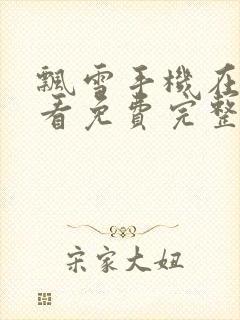 飄雪手機在
看免費完整
宋家大姐